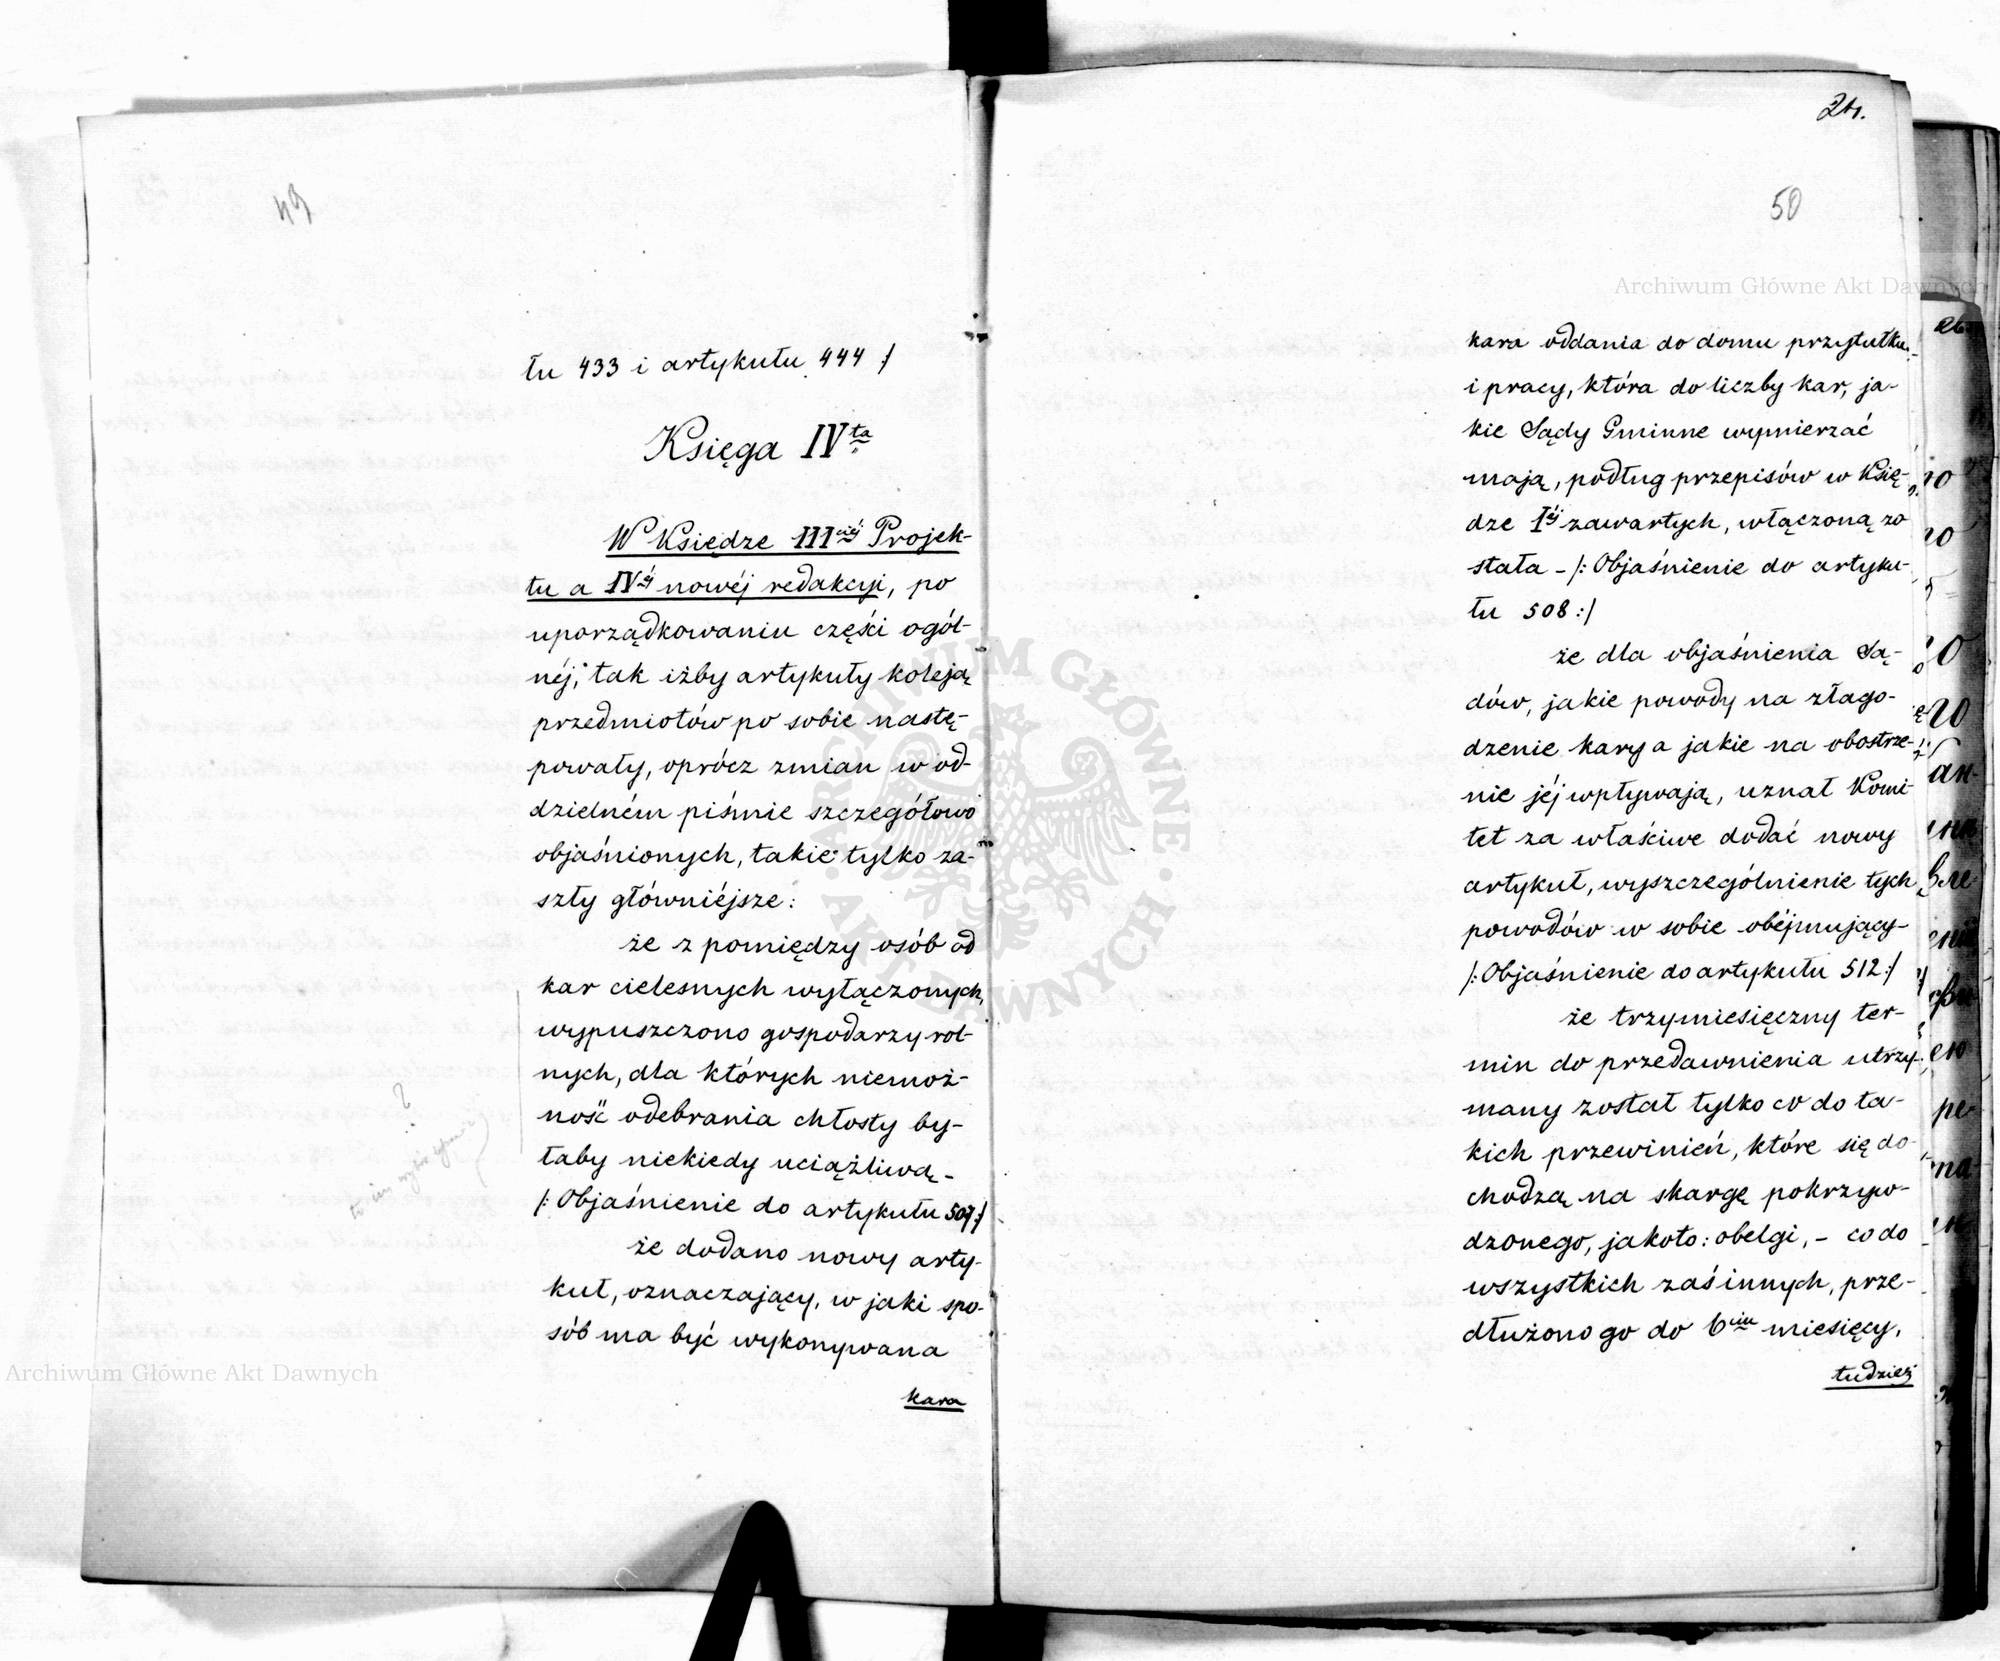 49
łu 433 i artykułu 444 :/
Księga IV<sup>ta</sup>
W Księdze III<sup>ciéj</sup> Projek-
tu a IV<sup>éj</sup> nowéj redakcyi, po
uporządkowaniu części ogól-
néj, tak iżby artykuły koleją
przedmiotów po sobie nastę-
powały, oprócz zmian w od-
dzielném piśmie szczegółowo
objaśnionych, takie tylko za-
szły główniéjsze:
że z pomiędzy osób od
kar cielesnych wyłączonych,
wypuszczono gospodarzy rol-
nych, dla których niemoż-
ność odebrania chłosty by-
łaby niekiedy uciążliwą -
/: Objaśnienie do artykułu 507 :/
że dodano nowy arty-
kuł, oznaczający, w jaki spo-
sób ma być wykonywana
kara
24.
50
kara oddania do domu przytułku
i pracy, która do liczby kar, ja-
kie Sądy Gminne wymierzać
mają, podług przepisów w Księ-
dze I<sup>éj</sup> zawartych, włączoną zo
stała - /: Objaśnienie do artyku-
łu 508 :/
że dla objaśnienia Są-
dów, jakie powody na złago-
dzenie kary a jakie na obostrze-
nie jéj wpływają, uznał Komi-
tet za właściwe dodać nowy
artykuł, wyszczególnienie tych
powodów w sobie obéjmujący -
/: Objaśnienie do artykułu 512 :/
że trzymiesięczny ter-
min do przedawnienia utrzy-
many został tylko co do ta-
kich przewinień, które się do-
chodzą na skargę pokrzyw-
dzonego, jakoto: obelgi, - co do
wszystkich zaś innych, prze-
dłużono go do 6<sup>ciu</sup> miesięcy,
tudzież
Archiwum Główne Akt Dawnych
Archiwum Główne Akt Dawnych
ARCHIWUM GŁÓWNE · AKT DAWNYCH ·